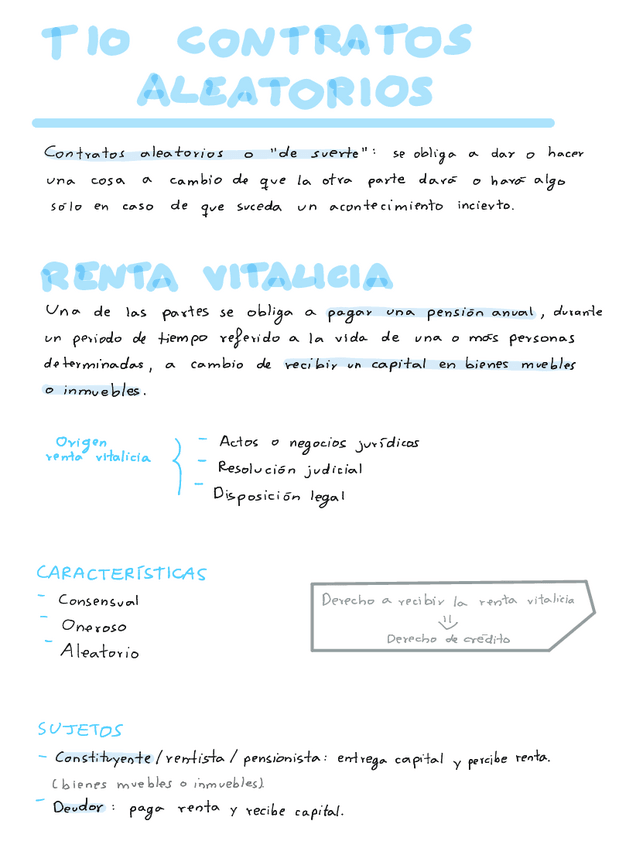 T10 CONTRATOS
ALEATORIOS
Contratos aleatorios o "de suerte": se obliga a dar o hacer
una cosa a cambio de que la otra parte dará o hará algo
sólo en caso de que suceda un acontecimiento incierto.
RENTA VITALICIA
Una de las partes se obliga a pagar una pensión anual, durante
un periodo de tiempo referido a la vida de una o más personas
determinadas, a cambio de recibir un capital en bienes muebles
o inmuebles.
Origen
renta vitalicia
- Actos o negocios jurídicos
- Resolución judicial
- Disposición legal
CARACTERÍSTICAS
- Consensual
- Oneroso
- Aleatorio
Derecho a recibir la renta vitalicia
⇓
Derecho de crédito
SUJETOS
- Constituyente / rentista / pensionista: entrega capital y percibe renta.
(bienes muebles o inmuebles).
- Deudor: paga renta y recibe capital.